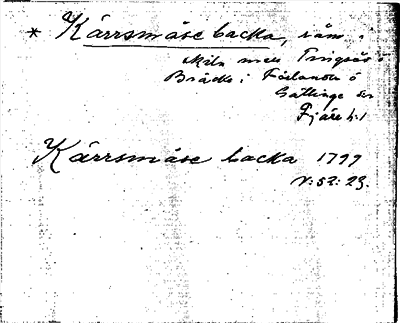 * Kärrsmåse backa, i äm i
skiln mell Tingsås o
Bräcke i Förlanda o
Gällinge sn
Fjäre h:d
Kärrsmåse backa 1799
V:52:23.